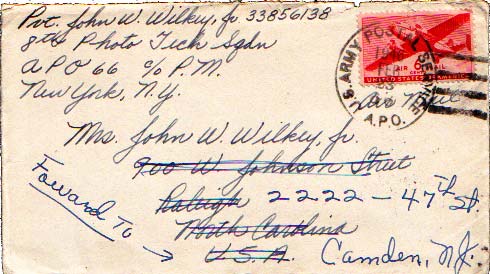 Pvt. John W. Wilkey, Jr 33856138
8th Photo Tech Sqdn
APO 66 c/o P.M.
New York, N.Y.
U.S. ARMY POSTAL SERVICE
A.P.O.
AIR MAIL
6 CENTS
UNITED STATES OF AMERICA
Air Mail
Mrs. John W. Wilkey, Jr.
900 W. Johnson Street
Raleigh 2222 - 47th St.
North Carolina
U.S.A. Camden, N.J.
Foward To